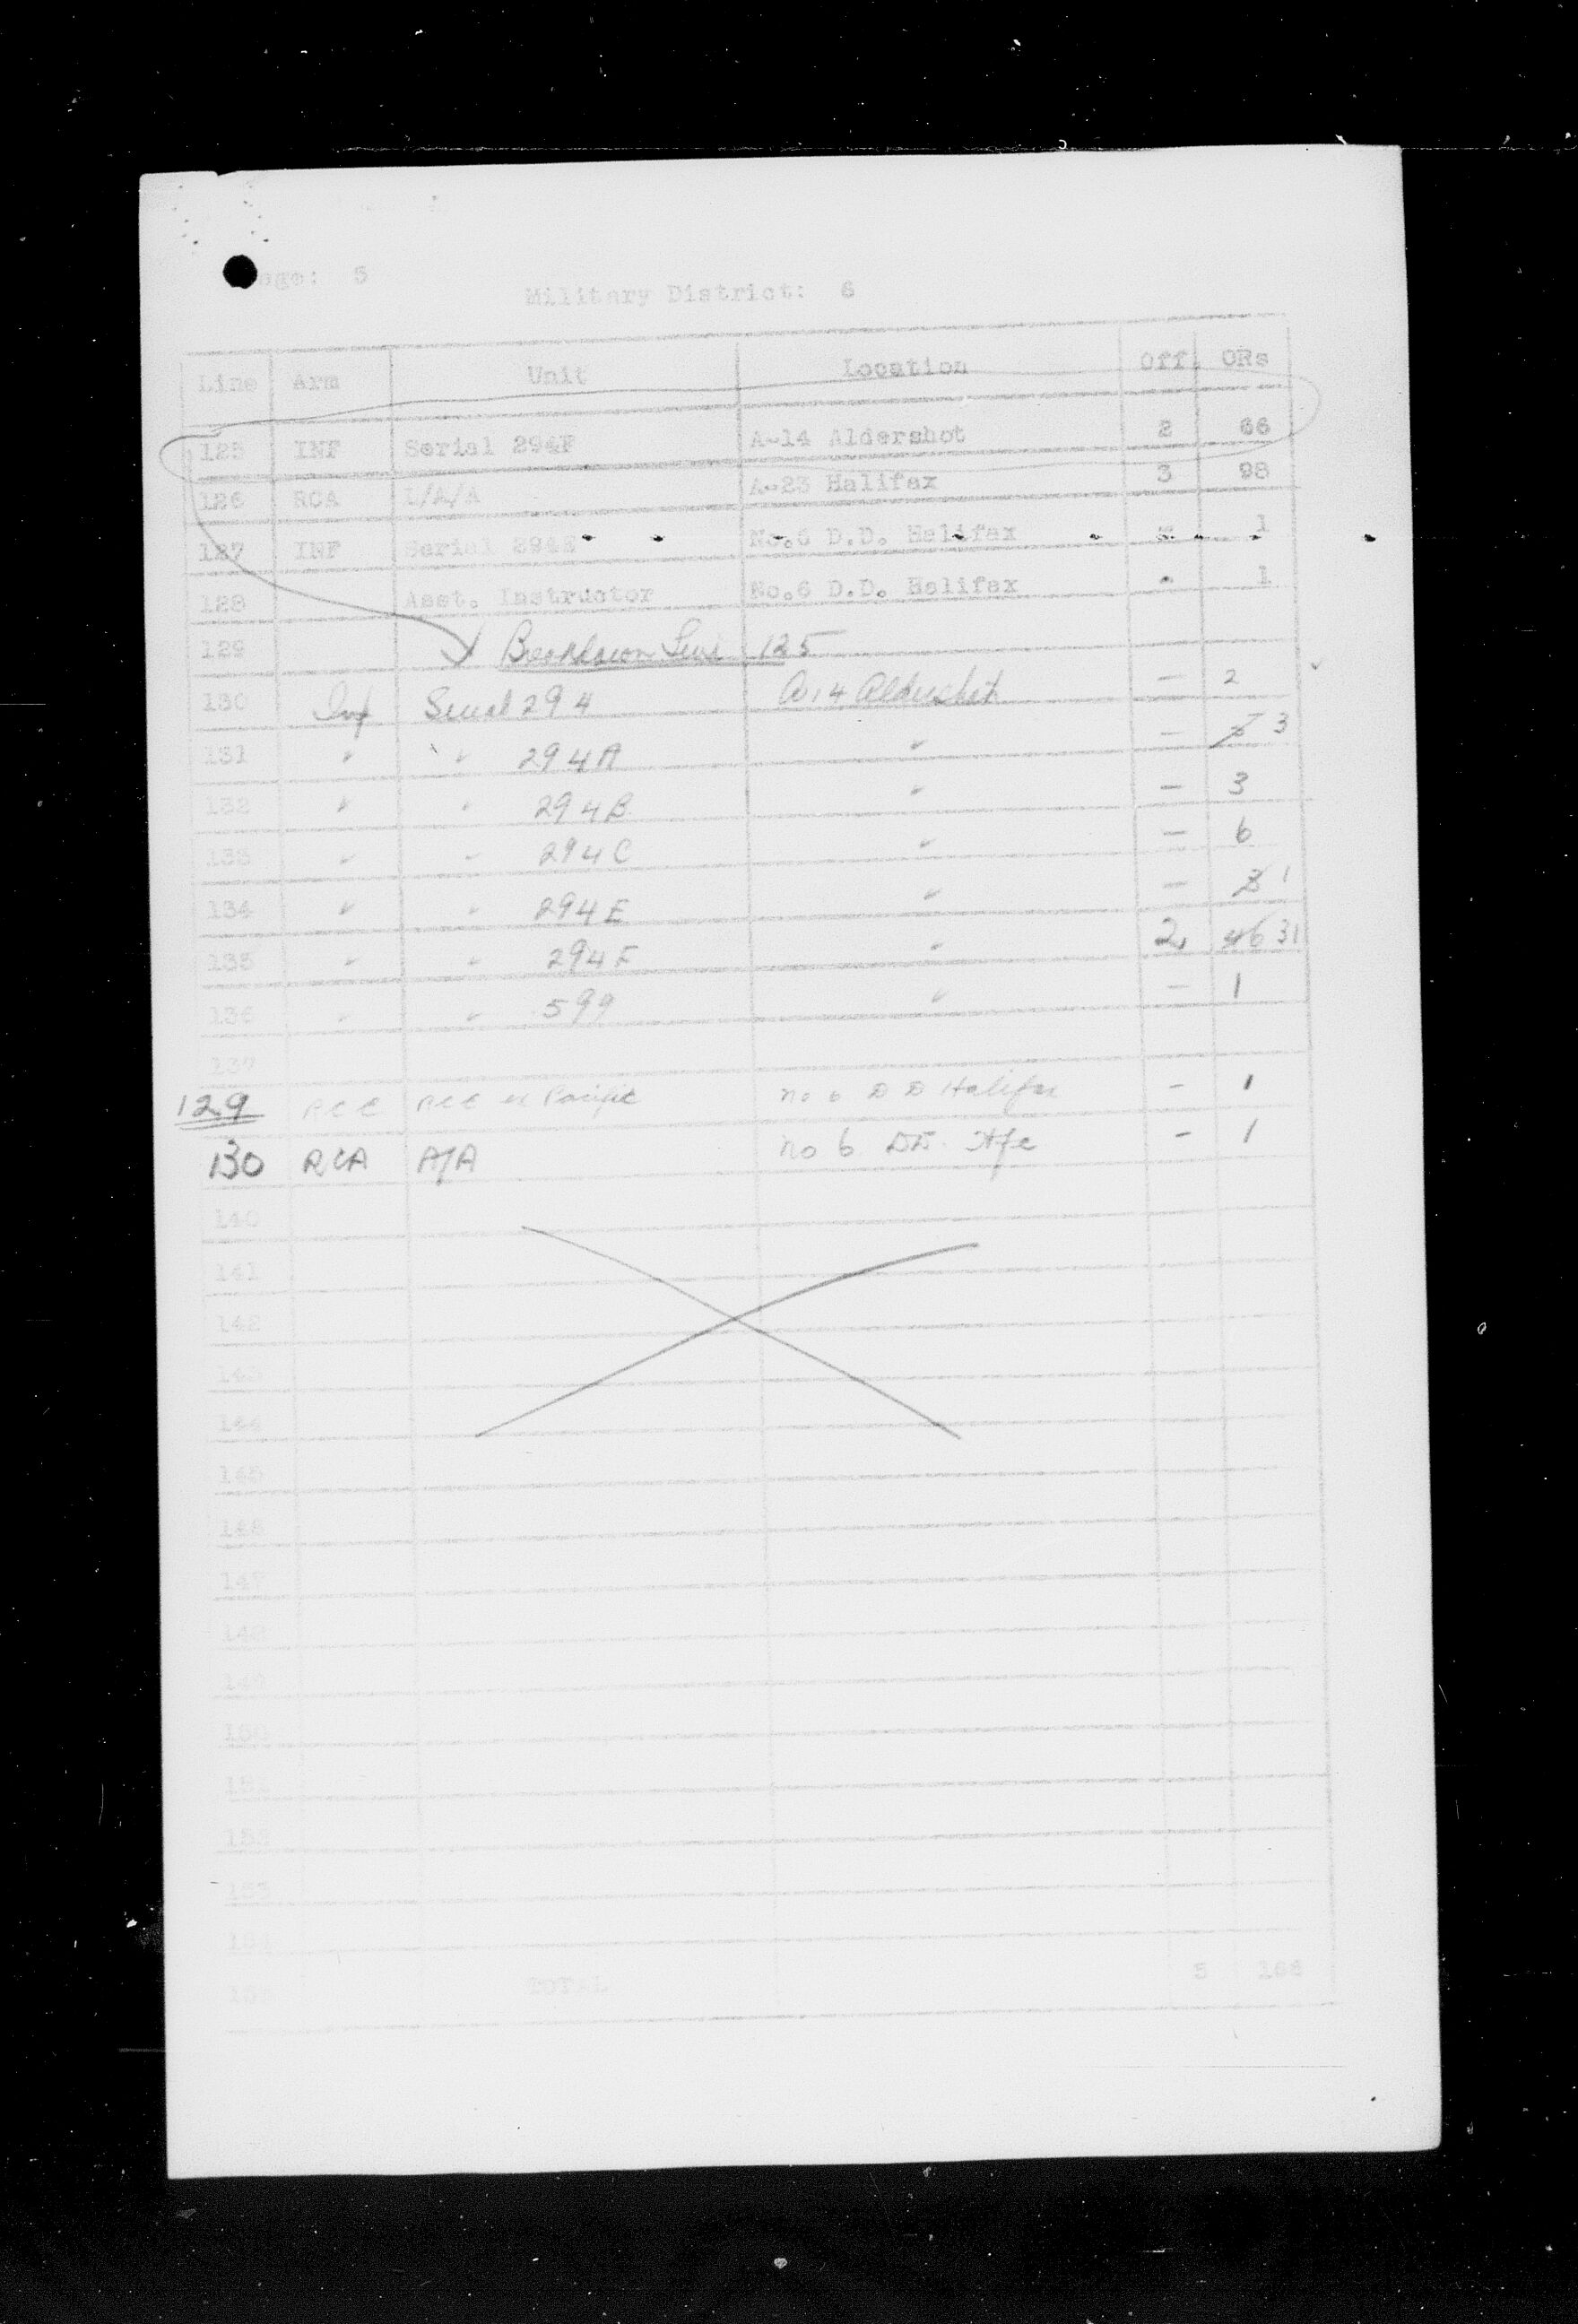 Page: 5
Military District: 6
Line Arm Unit Location Off. ORs
125 INF Serial 294F A-14 Aldershot 2 66
126 RCA L/A/A A-23 Halifax 3 98
127 INF Serial No.6 D.D. Halifax - 1
128 Asst. Instructor No.6 D.D. Halifax - 1
129 Breakdown 125
130 Inf Serial 294 A14 Aldershot — 2
131 " " 294A " — 3
132 " " 294B " — 3
133 " " 294C " — 6
134 " " 294E " — 3 1
135 " " 294F " 2 46 31
136 " " 599 " — 1
137
129 Pacific no 6 D D Halifax - 1
130 RCA A/A no 6 DD - 1
140
141
142
143
144
145
146
147
148
149
150
151
152
153
154
155 TOTAL 5 166